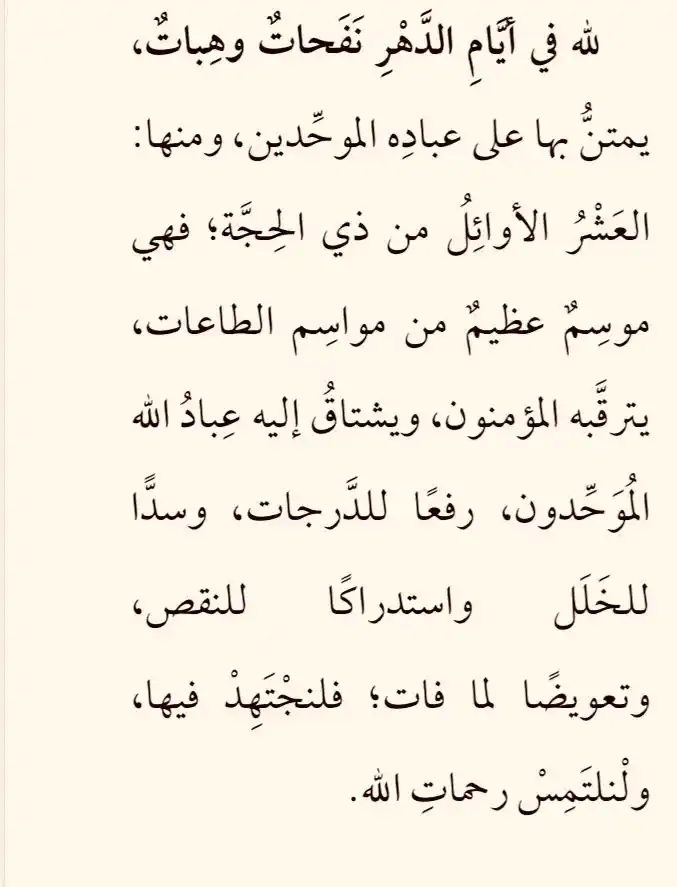 لله في أيَّامِ الدَّهْرِ نَفَحاتٌ وهِباتٌ،
يمتنُّ بها على عبادِه الموحِّدين، ومنها:
العَشْرُ الأوائِلُ من ذي الحِجَّة؛ فهي
موسِمٌ عظيمٌ من مواسِم الطاعات،
يترقَّبه المؤمنون، ويشتاقُ إليه عِبادُ الله
المُوَحِّدون، رفعًا للدَّرجات، وسدًّا
للخَلَل واستدراكًا للنقص،
وتعويضًا لما فات؛ فلنجْتَهِدْ فيها،
ولْنلتَمِسْ رحماتِ الله.